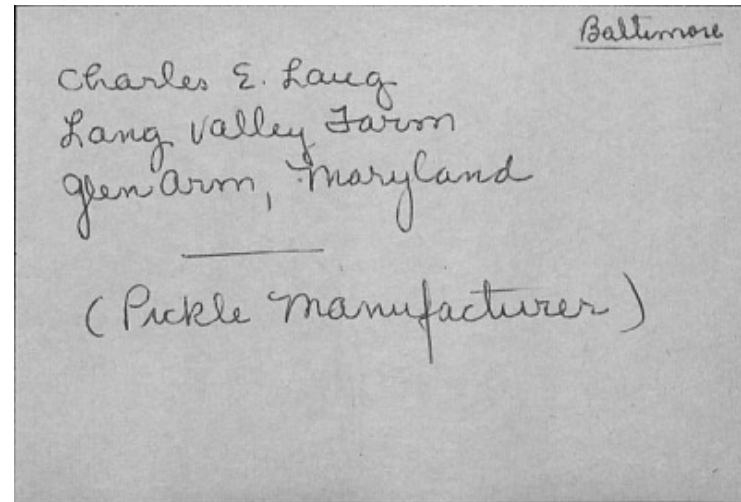 Baltimore
Charles E. Lang
Lang Valley Farm
Glen Arm, Maryland
(Pickle Manufacturer)